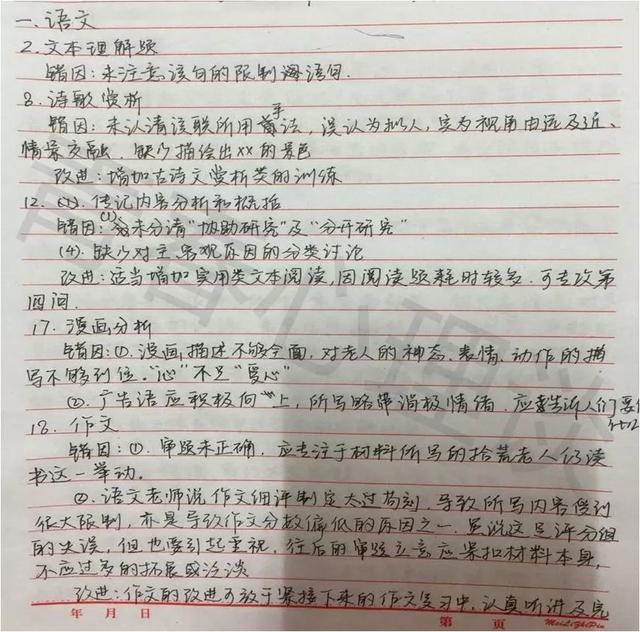 一. 语文
2. 文本理解题
错因：未注意该句的限制语句.
8. 诗歌赏析
错因：未认清该联所用手法，误认为拟人，实为视角由远及近、
情景交融，缺少描绘出xx的景色
改进：增加古诗文赏析类的训练
12. (1). 传记内容分析和概括
错因：(1)未分清“协助研究”及“分开研究”
(4). 缺少对主客观原因的分类讨论
改进：适当增加实用类文本阅读，因阅读题耗时较多，可专攻第
四问.
17. 漫画分析
错因：①. 漫画描述不够全面，对老人的神态、表情、动作的描
写不够到位。“沁”不足“爱心”
②. 广告语应积极向上，所写略带消极情绪，应要告诉人们要
18. 作文
错因：①. 审题未正确，应专注于材料所写的拾荒老人仍读
书这一举动.
②. 语文老师说作文细评制定太过苛刻，导致所写内容受到
很大限制，亦是导致作文分数偏低的原因之一，虽说这是评分组
的失误，但也要引起重视，往后的审题立意应紧扣材料本身，
不应过多的拓展或泛谈
改进：作文的改进可放于紧接下来的作文复习中，认真听讲及完
年 月 日 第 页 MeiLiZhiPin
青春心理